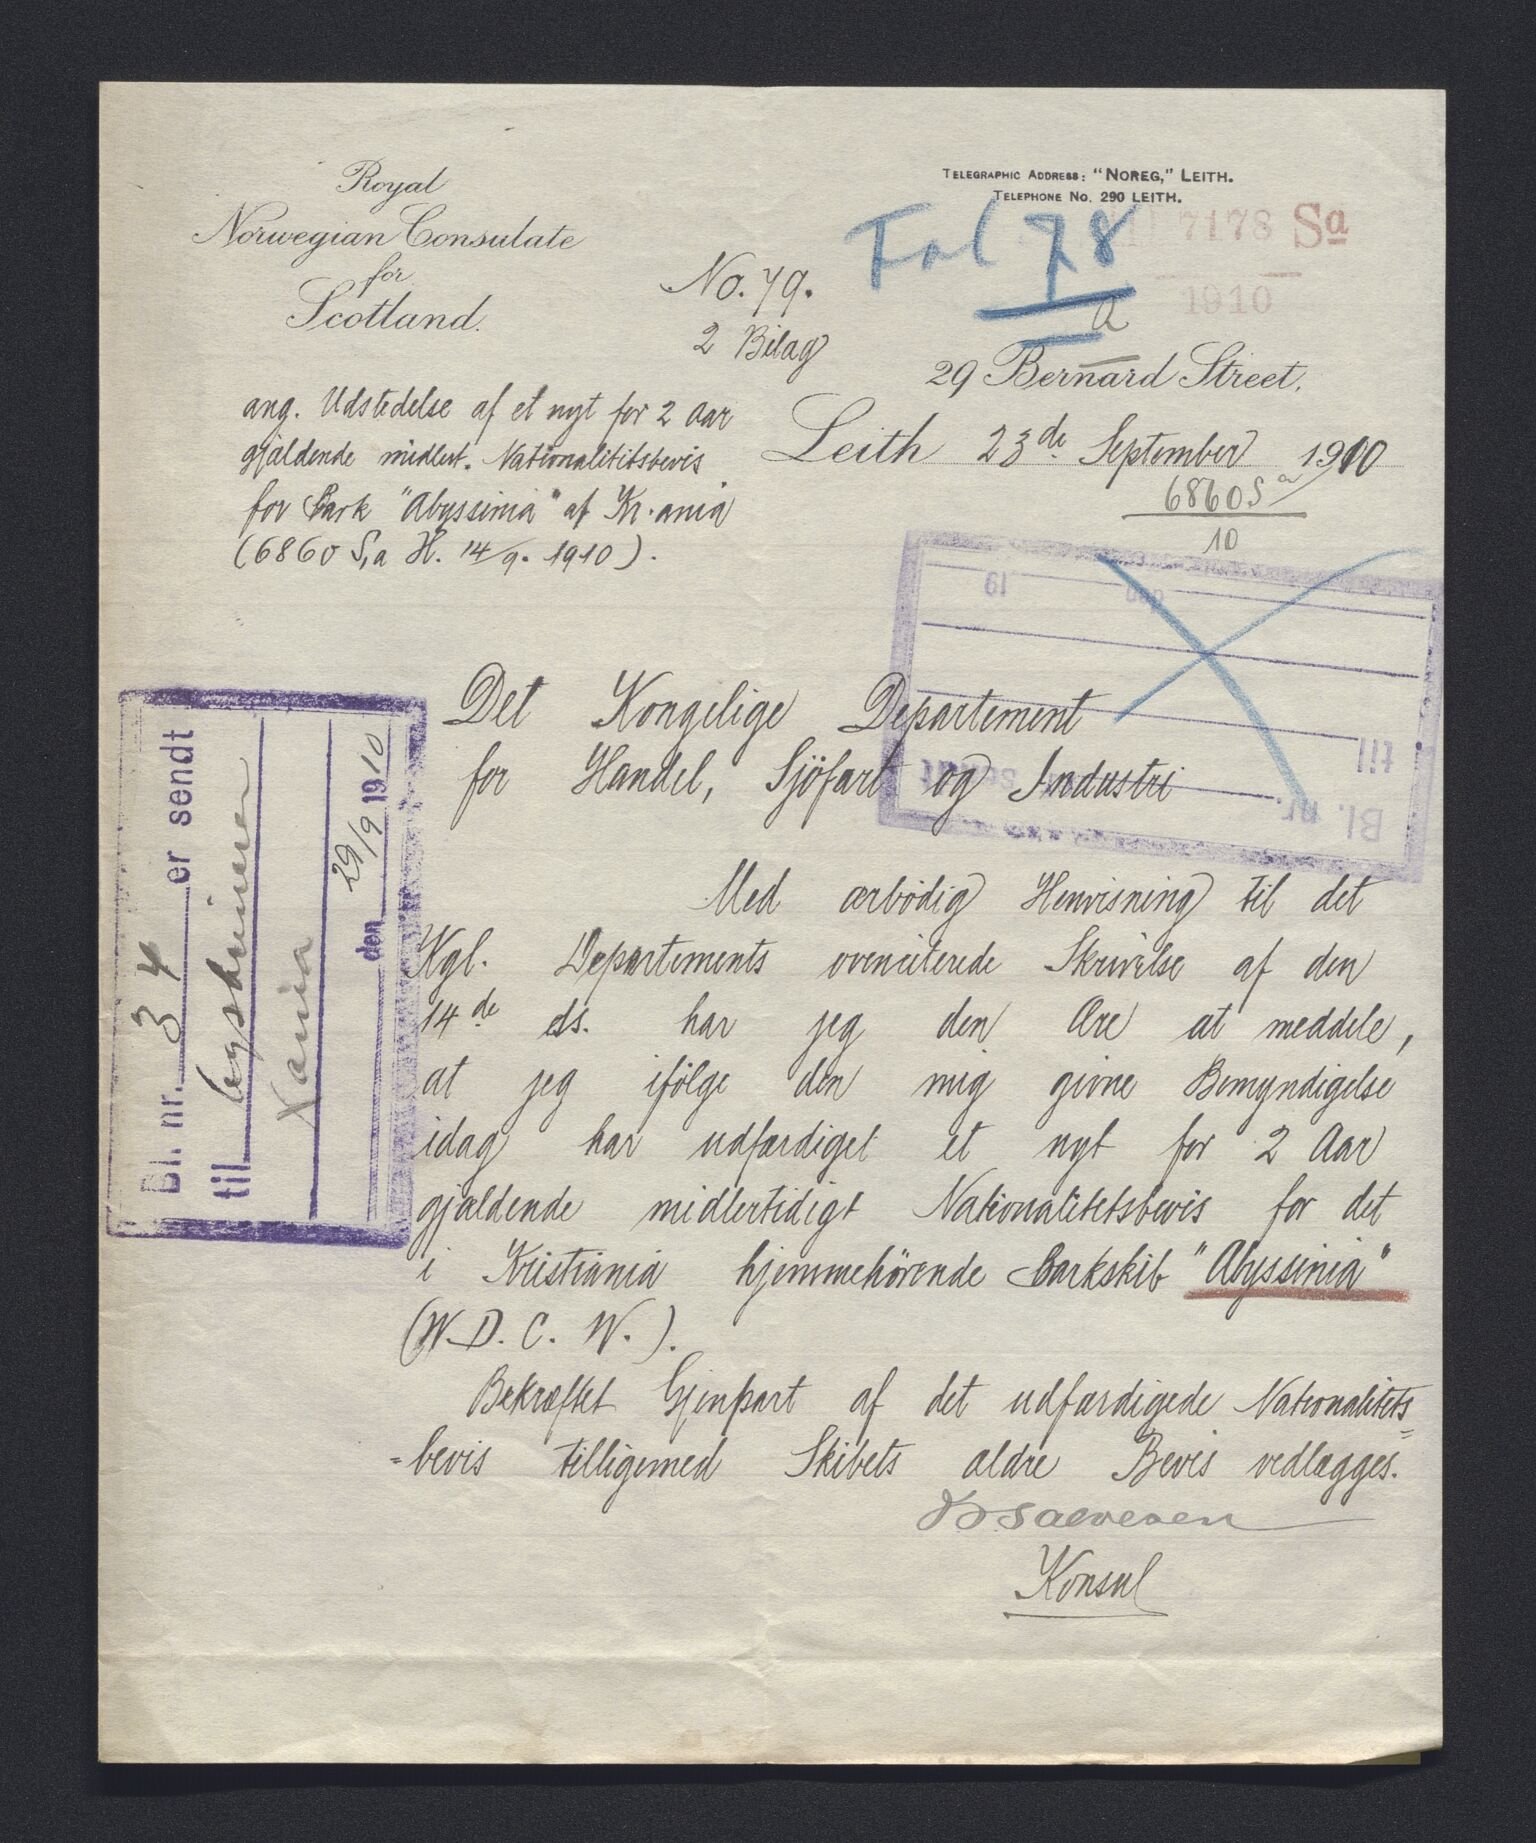 Royal
Norwegian Consulate
for
Scotland.
TELEGRAPHIC ADDRESS: "NOREG," LEITH.
TELEPHONE No. 290 LEITH.
7178 Sa
1910
Fol 78
a
No. 79.
2 Bilag
29 Bernard Street,
Leith 23de September 1910
6860 S
10
ang. Udstedelse af et nyt for 2 Aar
gjældende midlert. Nationalitetsbevis
for Bark "Abyssinia" af Kr.ania
(6860 S,a H. 14/9. 1910).
Bl. nr.
til
den 19
Det Kongelige Departement
for Handel, Sjöfart og Industri
Bl. nr. 34 er sendt
til
den 29/9 1910
Med ærbödig Henvisning til det
Kgl. Departements ovenciterede Skrivelse af den
14de ds. har jeg den Ære at meddele,
at jeg ifölge den mig givne Bemyndigelse
idag har udfærdiget et nyt for 2 Aar
gjældende midlertidigt Nationalitetsbevis for det
i Kristiania hjemmehörende Barkskib "Abyssinia"
(W. D. C. W.).
Bekræftet Gjenpart af det udfærdigede Nationalitets=
=bevis tilligemed Skibets ældre Bevis vedlægges.
Salvesen
Konsul